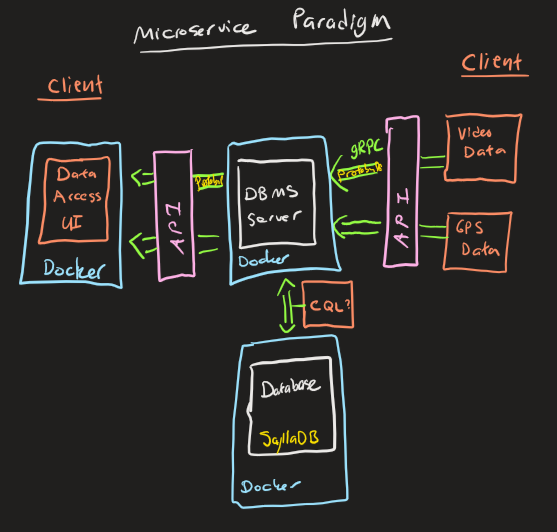 Microservice Paradigm
Client
Client
Data
Access
UI
Docker
API
Protobuf
DBMS
Server
Docker
gRPC
Protobuf
API
Video
Data
GPS
Data
CQL?
Database
ScyllaDB
Docker